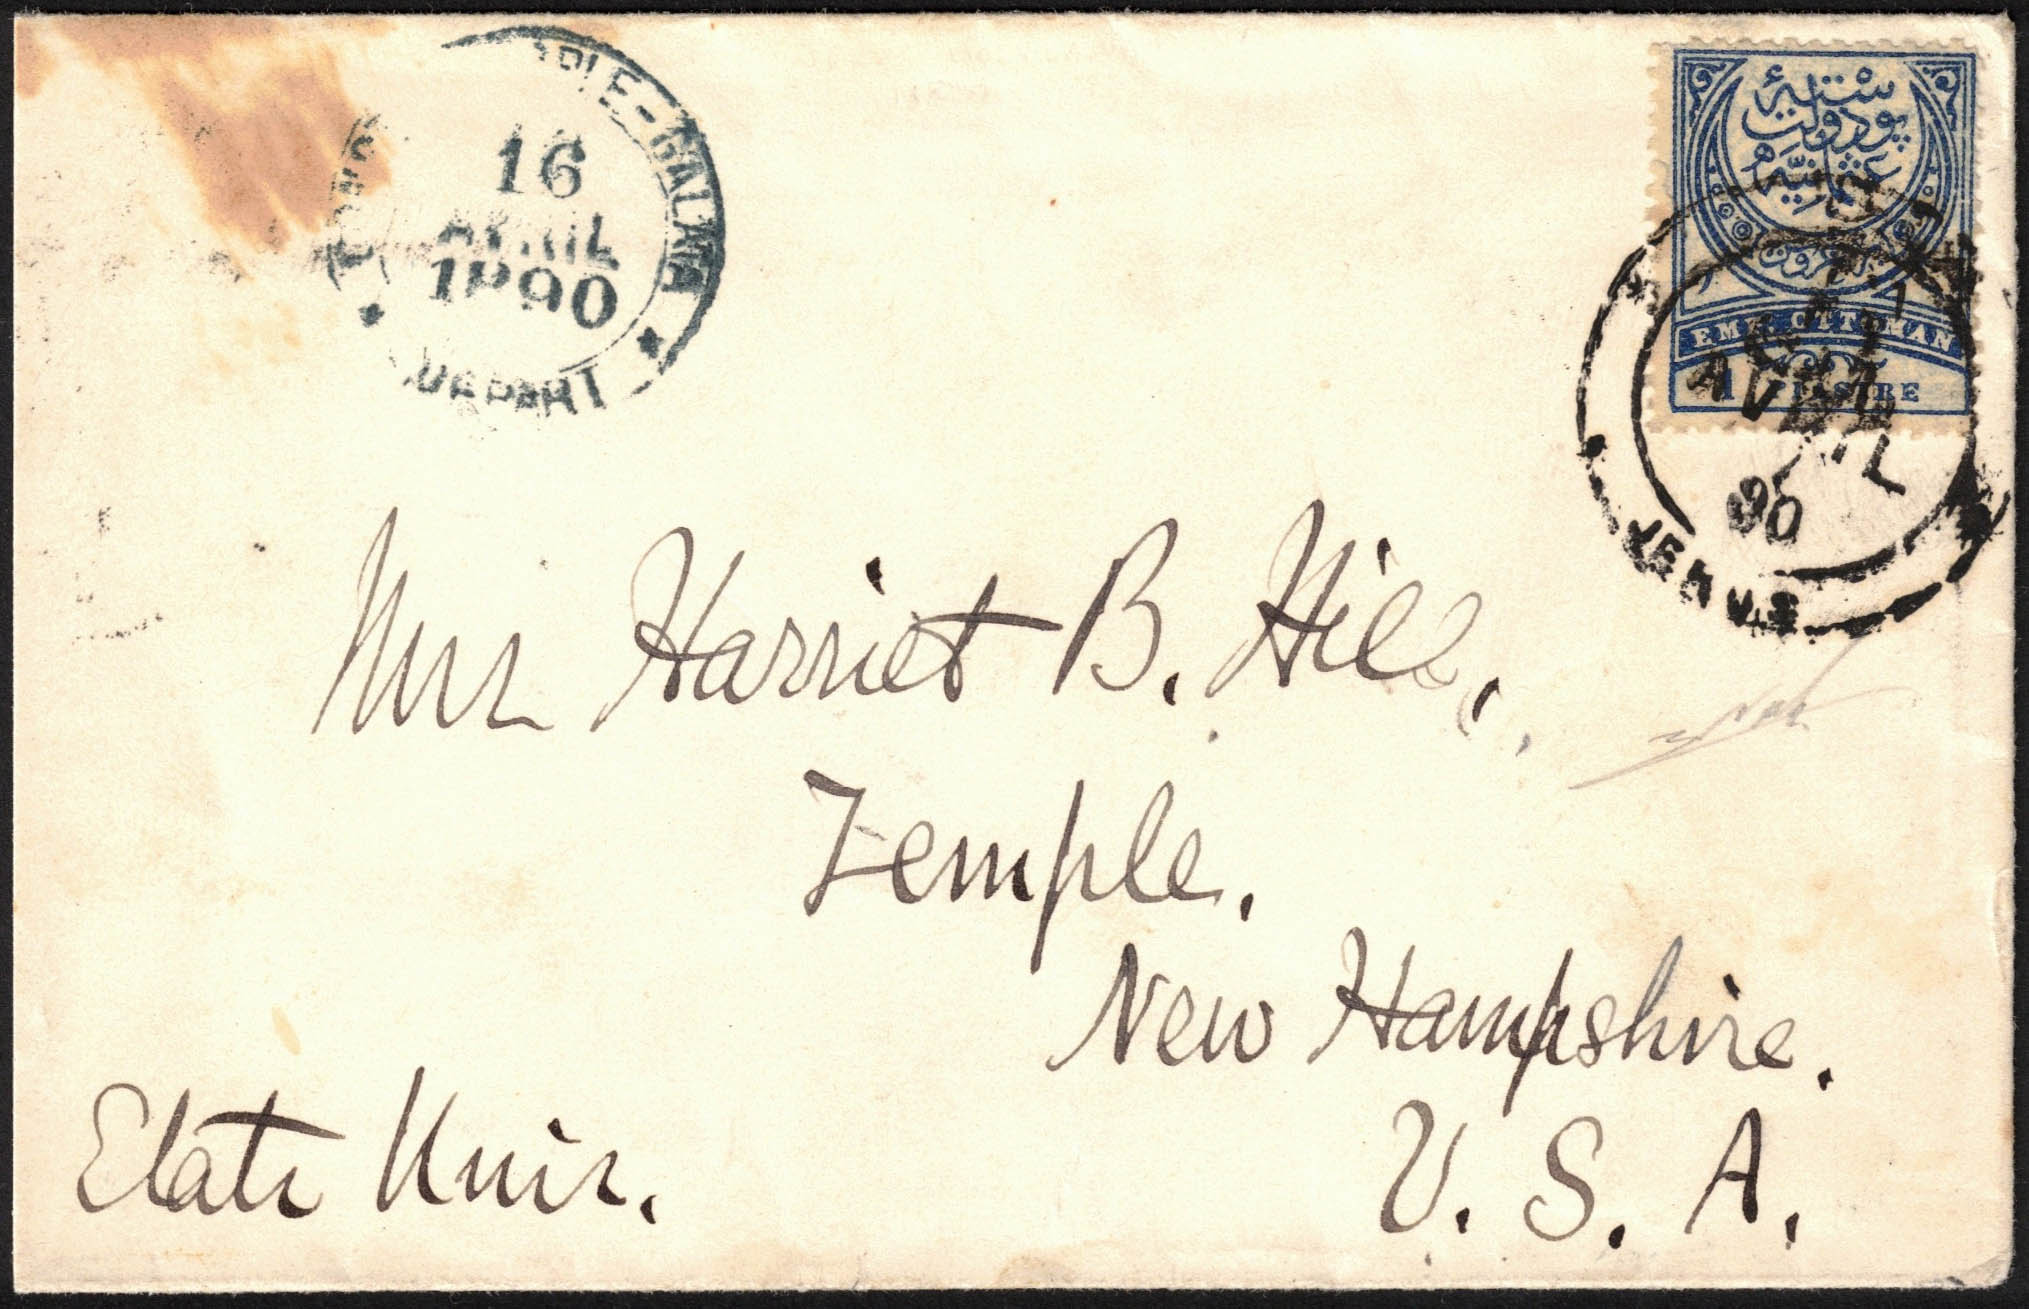 16
AVRIL
1890
DEPART
پوستۀ
دولت
عثمانیه
EMP. OTTOMAN
1 PIASTRE
AVRIL
90
JERUS
Mrs Harriet B. Hill,
Temple.
New Hampshire.
U. S. A.
Etats Unis.